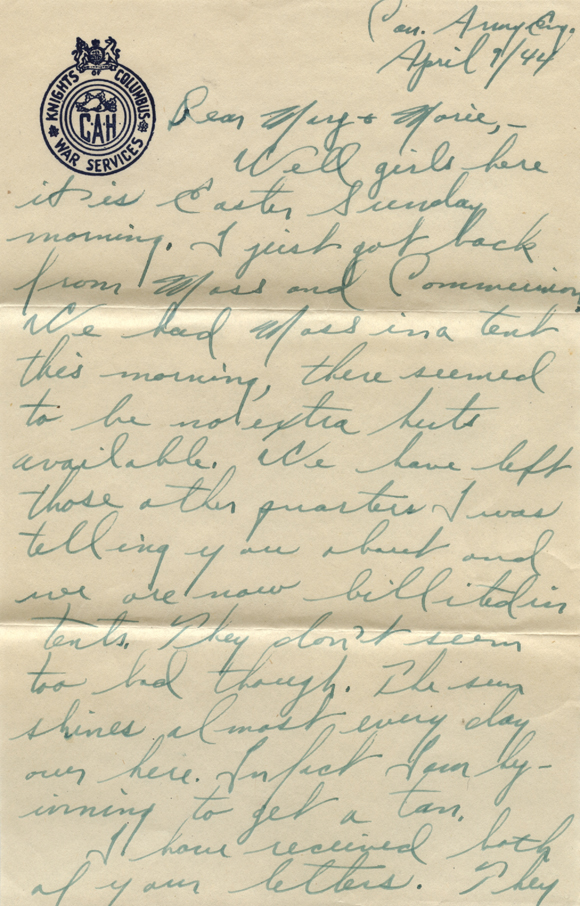 Can. Army Eng.
April 9/44
KNIGHTS OF COLUMBUS
CAH
WAR SERVICES
Dear Mary & Marie,-
Well girls here
it is Easter Sunday
morning. I just got back
from Mass and Communion
We had Mass in a tent
this morning, there seemed
to be no extra huts
available. We have left
those other quarters I was
telling you about and
we are now billited in
tents. They don't seem
too bad though. The sun
shines almost every day
over here. Infact I am by-
inning to get a tan.
I have received both
of your letters. They